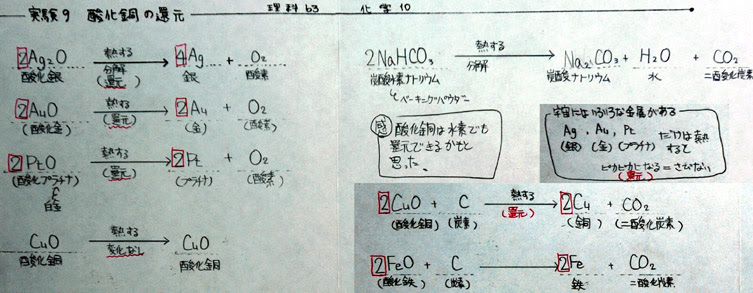 実験9 酸化銅の還元
理科 63 化学 10
2Ag₂O 熱する 4Ag + O₂
酸化銀 分解 (還元) 銀 酸素
2AuO 熱する 2Au + O₂
(酸化金) (還元) (金) (酸素)
2PtO 熱する 2Pt + O₂
(酸化プラチナ) (還元) (プラチナ) (酸素)
白金
CuO 熱する CuO
酸化銅 変化なし 酸化銅
2NaHCO₃ 熱する Na₂CO₃ + H₂O + CO₂
炭酸水素ナトリウム 分解 炭酸ナトリウム 水 二酸化炭素
ベーキングパウダー
感 酸化銅は水素でも
還元できるかもと
思った。
宇宙にはいろいろな金属がある
Ag, Au, Pt だけは熱
(銀) (金) (プラチナ) すると
ピカピカになる = さびない
(還元)
2CuO + C 熱する 2Cu + CO₂
(酸化銅) (炭素) (還元) (銅) (二酸化炭素)
2FeO + C 2Fe + CO₂
(酸化鉄) (炭素) 鉄 二酸化炭素